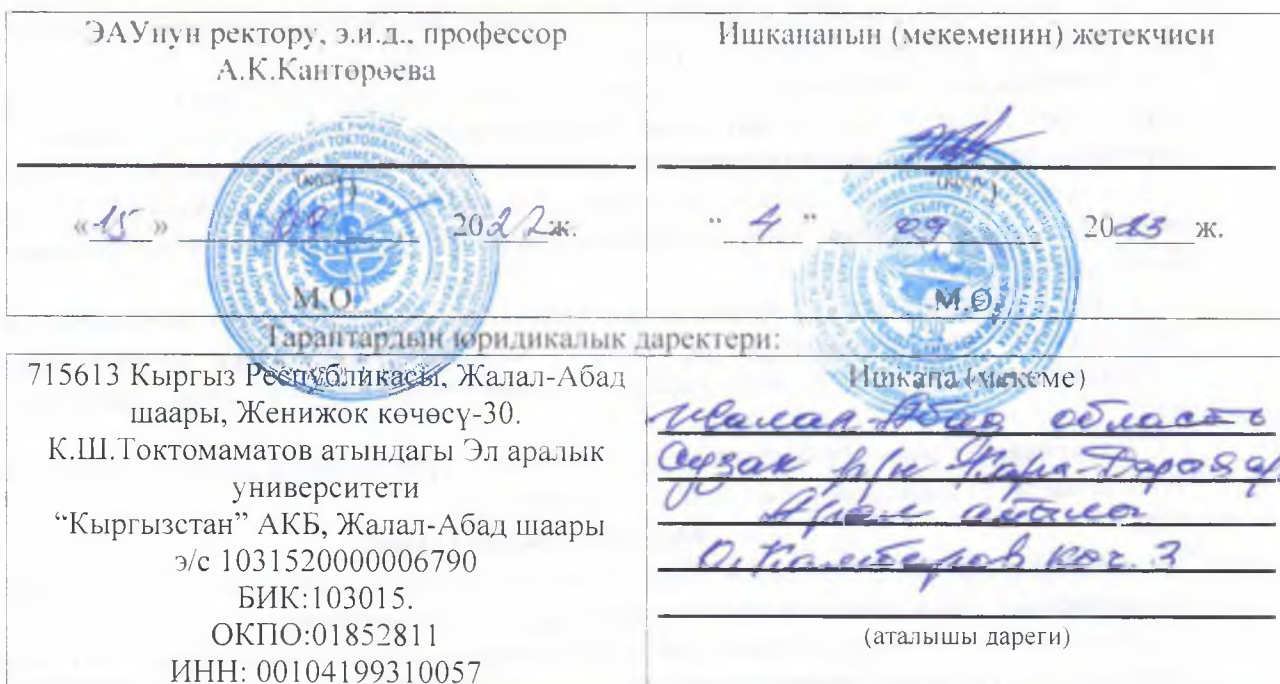 ЭАУнун ректору, э.и.д., профессор
А.К.Кантороева
«15» 09 2022ж.
М.О.
Ишкананын (мекеменин) жетекчиси
“ 4 ” 09 2023 ж.
М.О.
Тараптардын юридикалык даректери:
715613 Кыргыз Республикасы, Жалал-Абад
шаары, Женижок көчөсү-30.
К.Ш.Токтомаматов атындагы Эл аралык
университети
“Кыргызстан” АКБ, Жалал-Абад шаары
э/с 1031520000006790
БИК:103015.
ОКПО:01852811
ИНН: 00104199310057
Ишкана (мекеме)
Жалал-Абад область
Сузак р/н Кара-Дарыя а/
Арал айылы
көч. 3
(аталышы дареги)